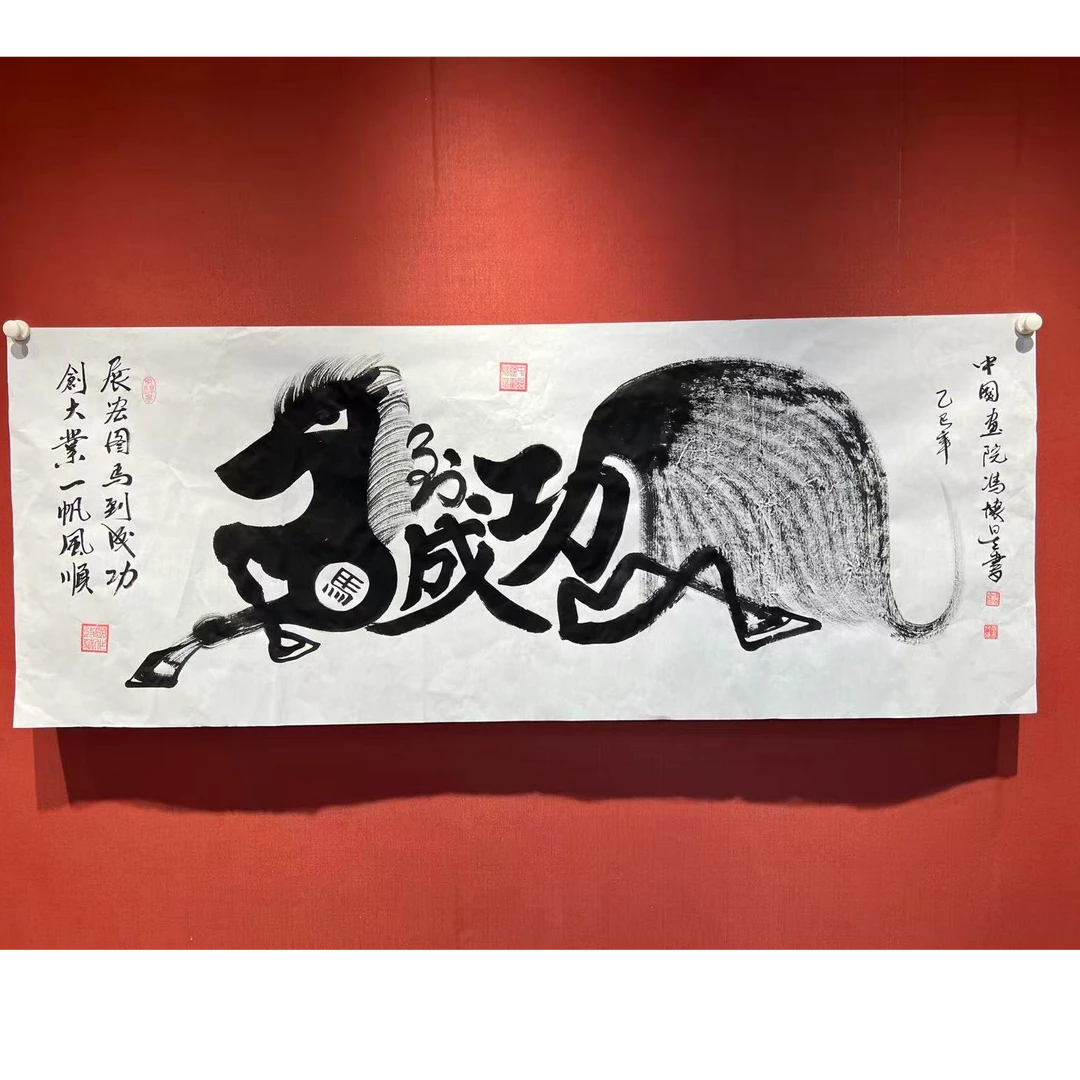 馬到成功
展宏图马到成功
創大業一帆風順
乙巳年
中國画院馮書